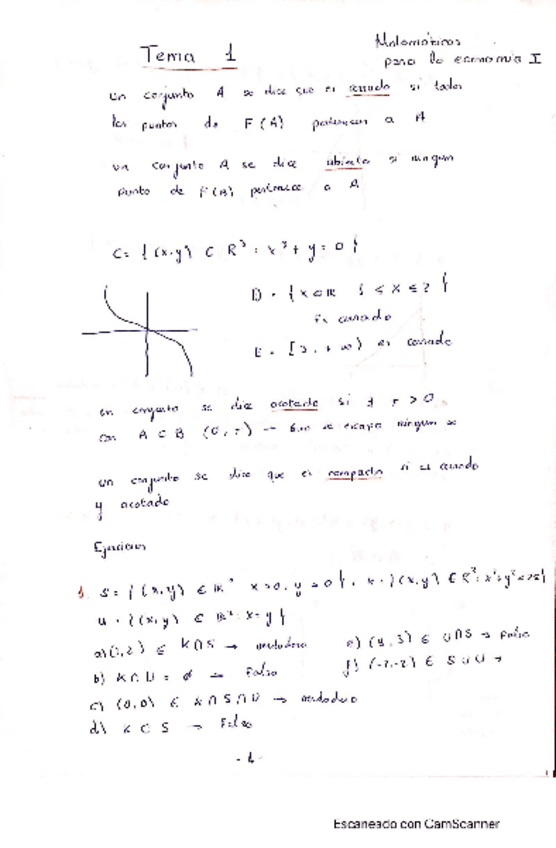 Tema 1
Matemáticas
para la economía I
un conjunto A se dice que es cerrado si todos
los puntos de F(A) pertenecen a A
un conjunto A se dice abierto si ningun
punto de F(A) pertenece a A
C = {(x,y) ⊂ R² : x³ + y = 0}
D = {x ∈ R 1 ≤ x ≤ 2}
Es cerrado
E = [3, +∞) es cerrado
un conjunto se dice acotado si ∃ r > 0
con A ⊂ B (0, r) se escapa ningun
un conjunto se dice que es compacto si es cerrado
y acotado
Ejercicios
1. S = {(x,y) ∈ R² x>0, y = 0}, K = {(x,y) ∈ R²: x²+y²<=25}
U = {(x,y) ∈ R²: x=y}
a) (1,2) ∈ K∩S → verdadero
e) (4,3) ∈ U∩S → Falso
b) K∩U = ∅ → Falso
f) (-2,-2) ∈ S∪U →
c) (0,0) ∈ K∩S∩U → verdadero
d) K ⊂ S → Falso
-1-
Escaneado con CamScanner